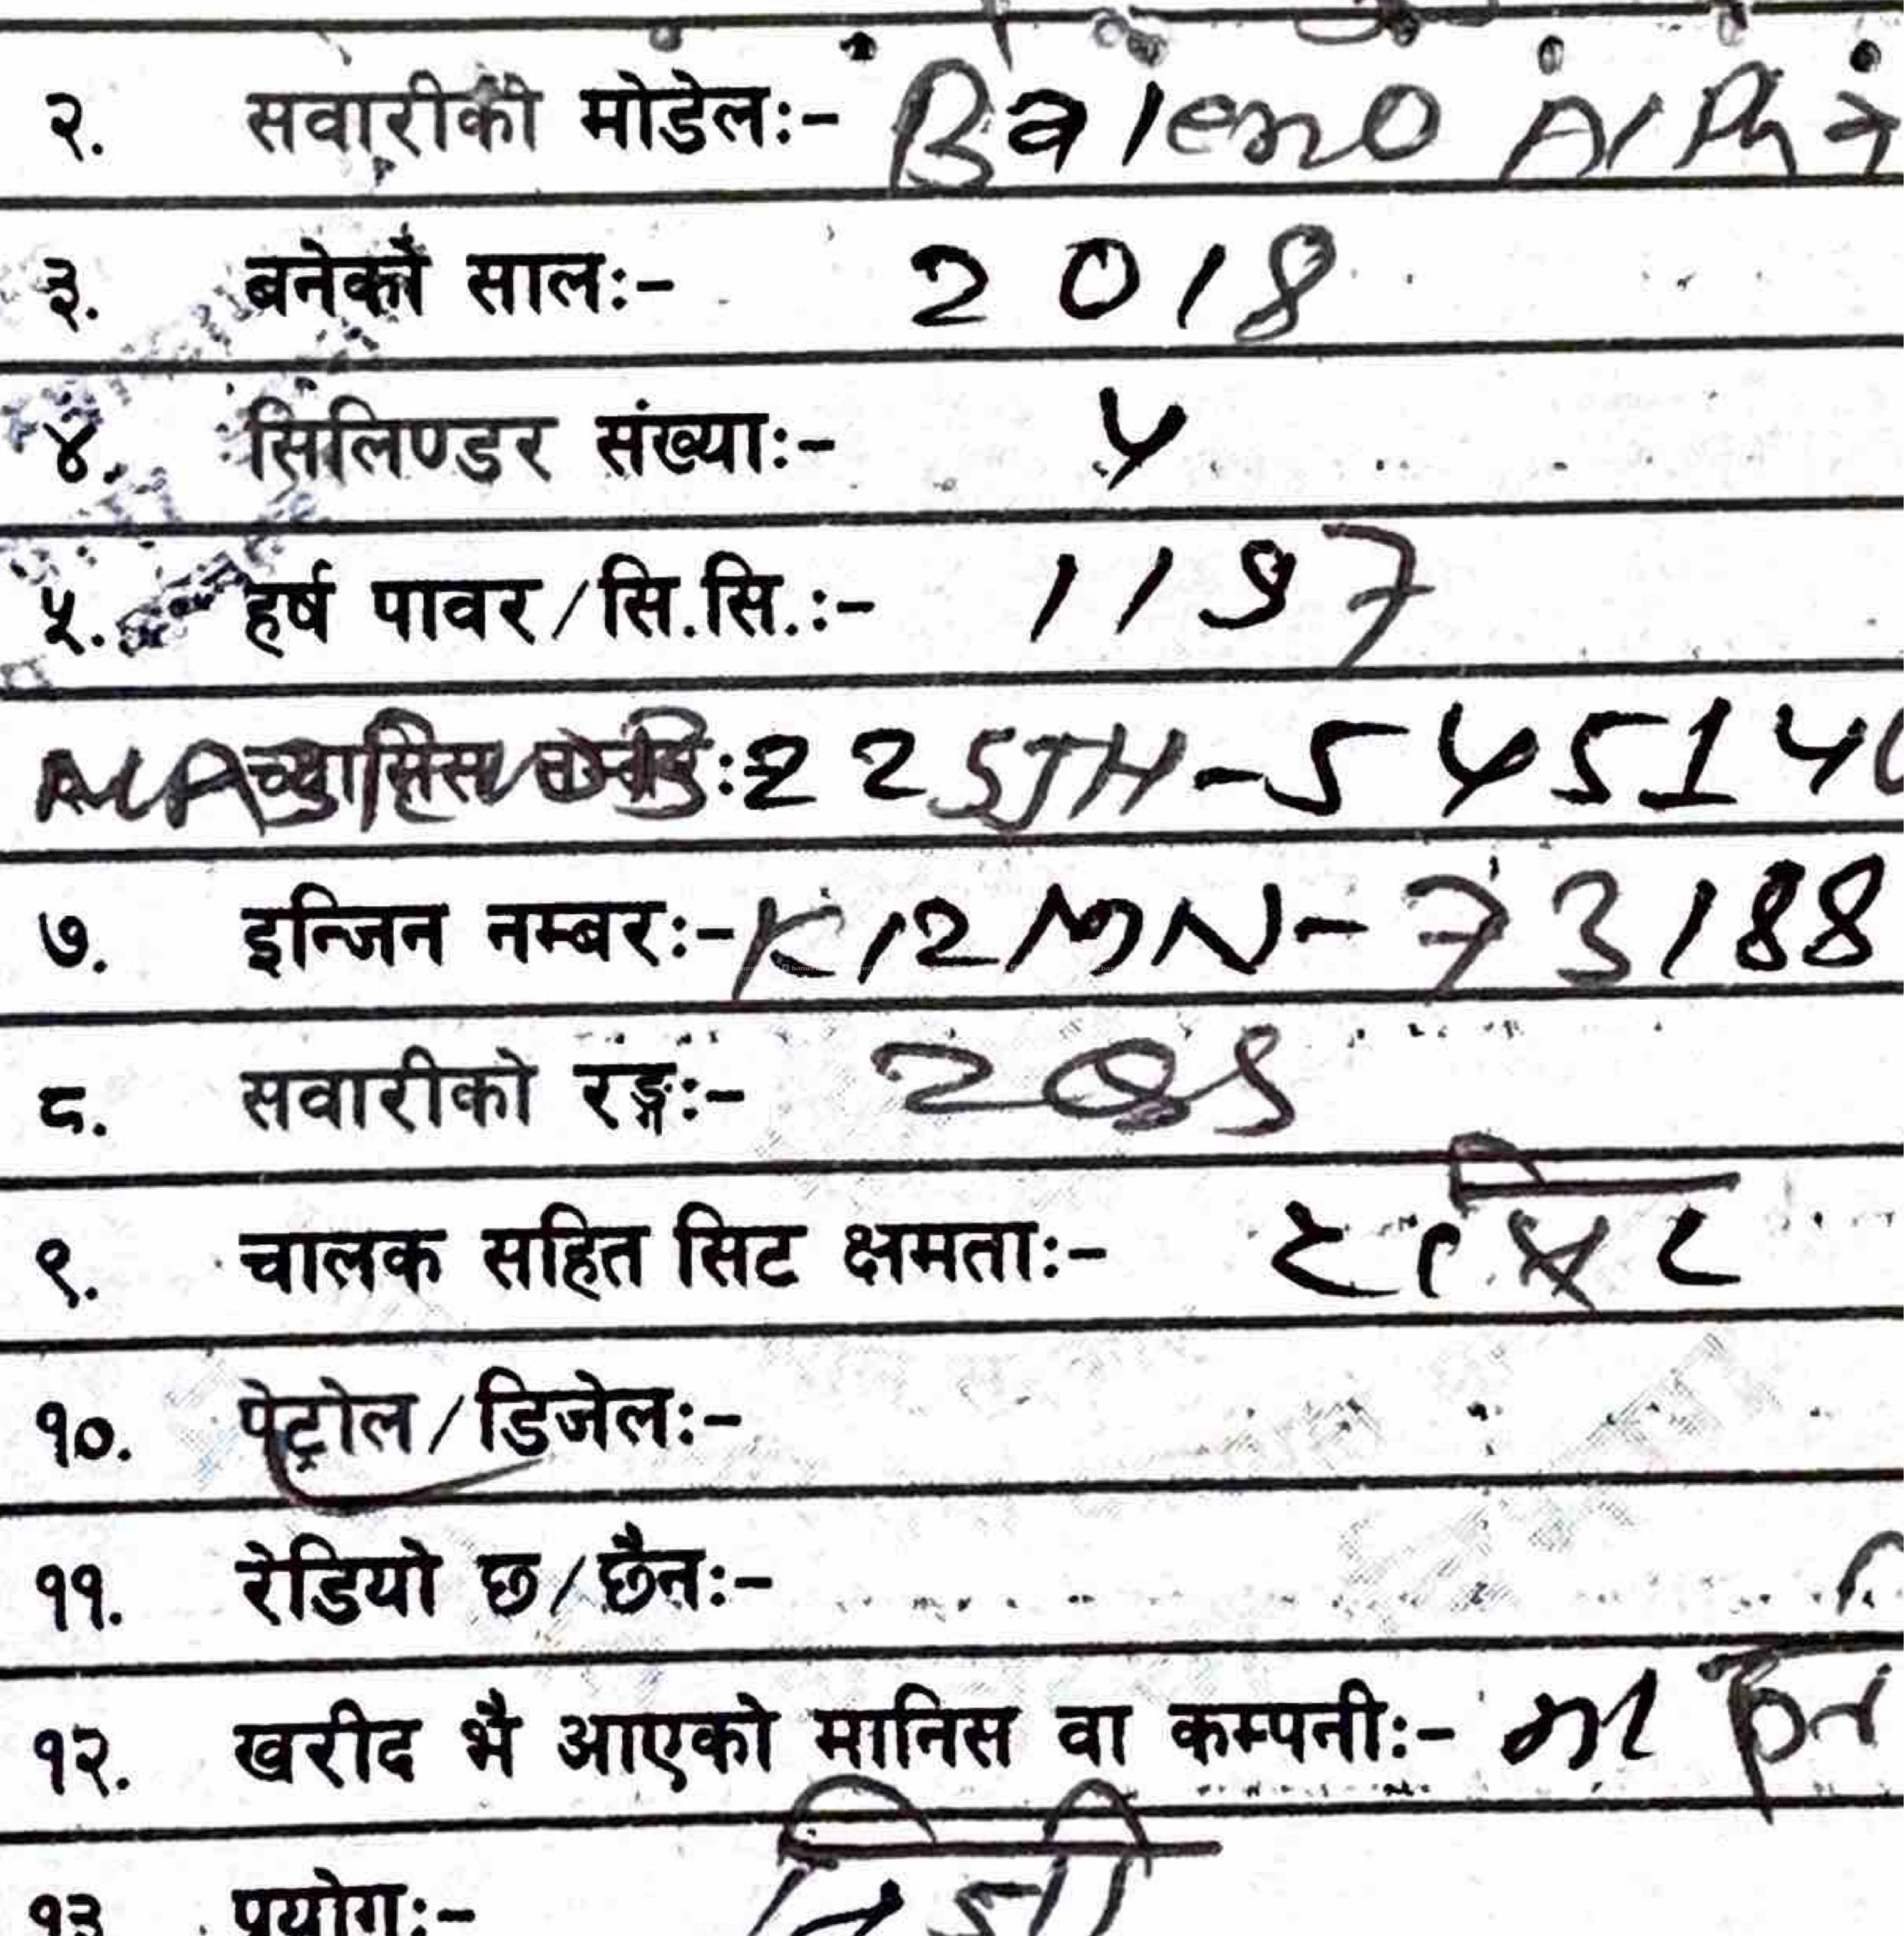 २. सवारीको मोडेल:- Baleno Alpha
३. बनेको साल:- 2018
४. सिलिण्डर संख्या:- 4
५. हर्ष पावर/सि.सि.:- 1197
च्यासिस :22SJH-545140
७. इन्जिन नम्बर:-K12MN-73188
८. सवारीको रङ्ग:-
९. चालक सहित सिट क्षमता:-
१०. पेट्रोल/डिजेल:-
११. रेडियो छ/छैन:-
१२. खरीद भै आएको मानिस वा कम्पनी:-
१३ प्रयोग:- निजी